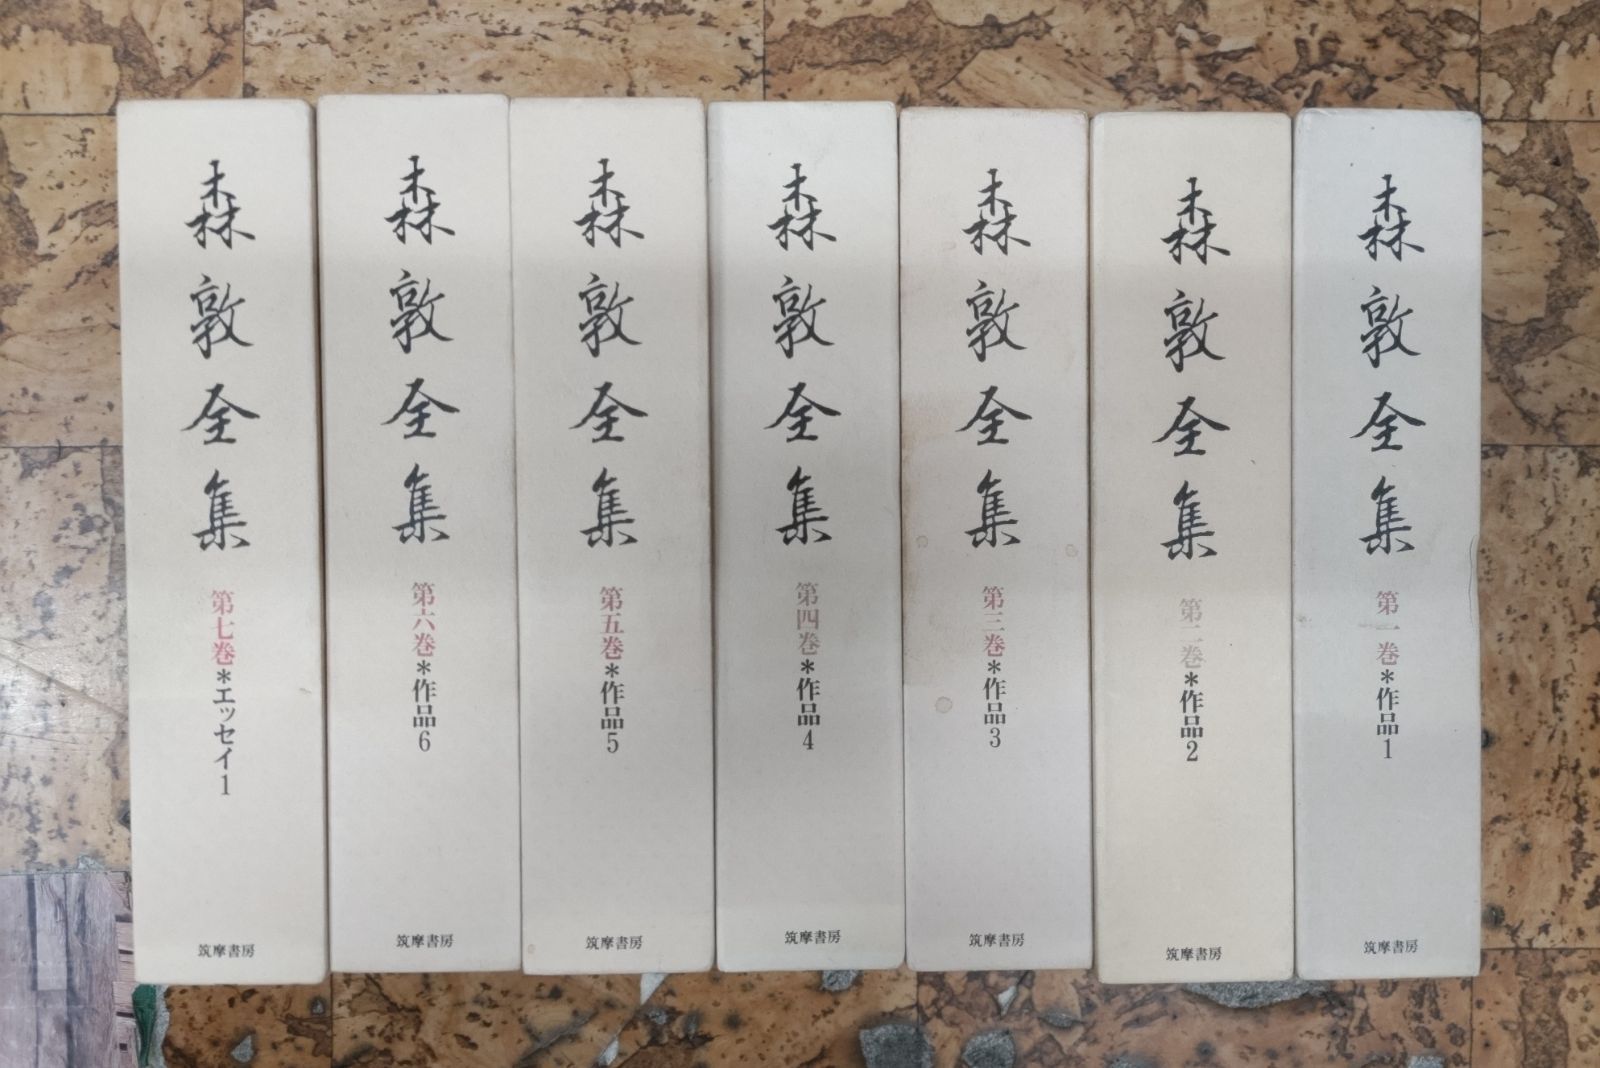 森敦全集 第七巻*エッセイ1
筑摩書房
森敦全集 第六巻*作品6
筑摩書房
森敦全集 第五巻*作品5
筑摩書房
森敦全集 第四巻*作品4
筑摩書房
森敦全集 第三巻*作品3
筑摩書房
森敦全集 第二巻*作品2
筑摩書房
森敦全集 第一巻*作品1
筑摩書房